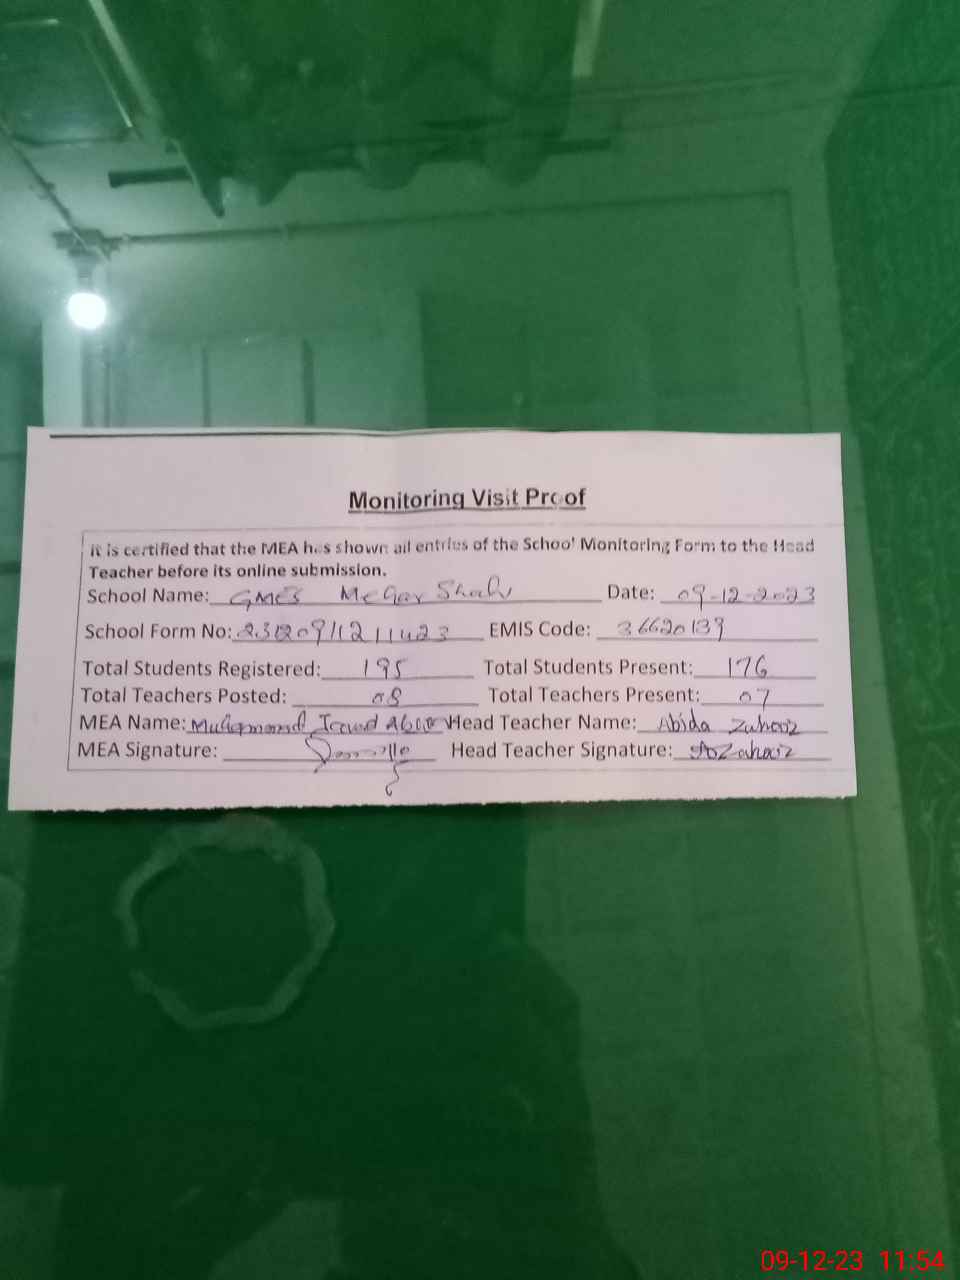 Monitoring Visit Proof
It is certified that the MEA has shown all entries of the School Monitoring Form to the Head
Teacher before its online submission.
School Name: GMES Mehar Shah Date: 09-12-2023
School Form No: EMIS Code: 36620139
Total Students Registered: 195 Total Students Present: 176
Total Teachers Posted: 08 Total Teachers Present: 07
MEA Name: Muhammad Head Teacher Name: Abida Zuhair
MEA Signature: Head Teacher Signature:
09-12-23 11:54